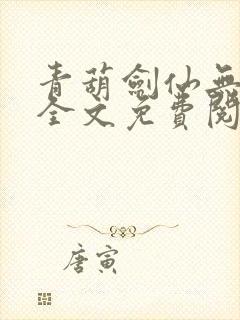 青葫劍仙無
全文免費閱
唐寅